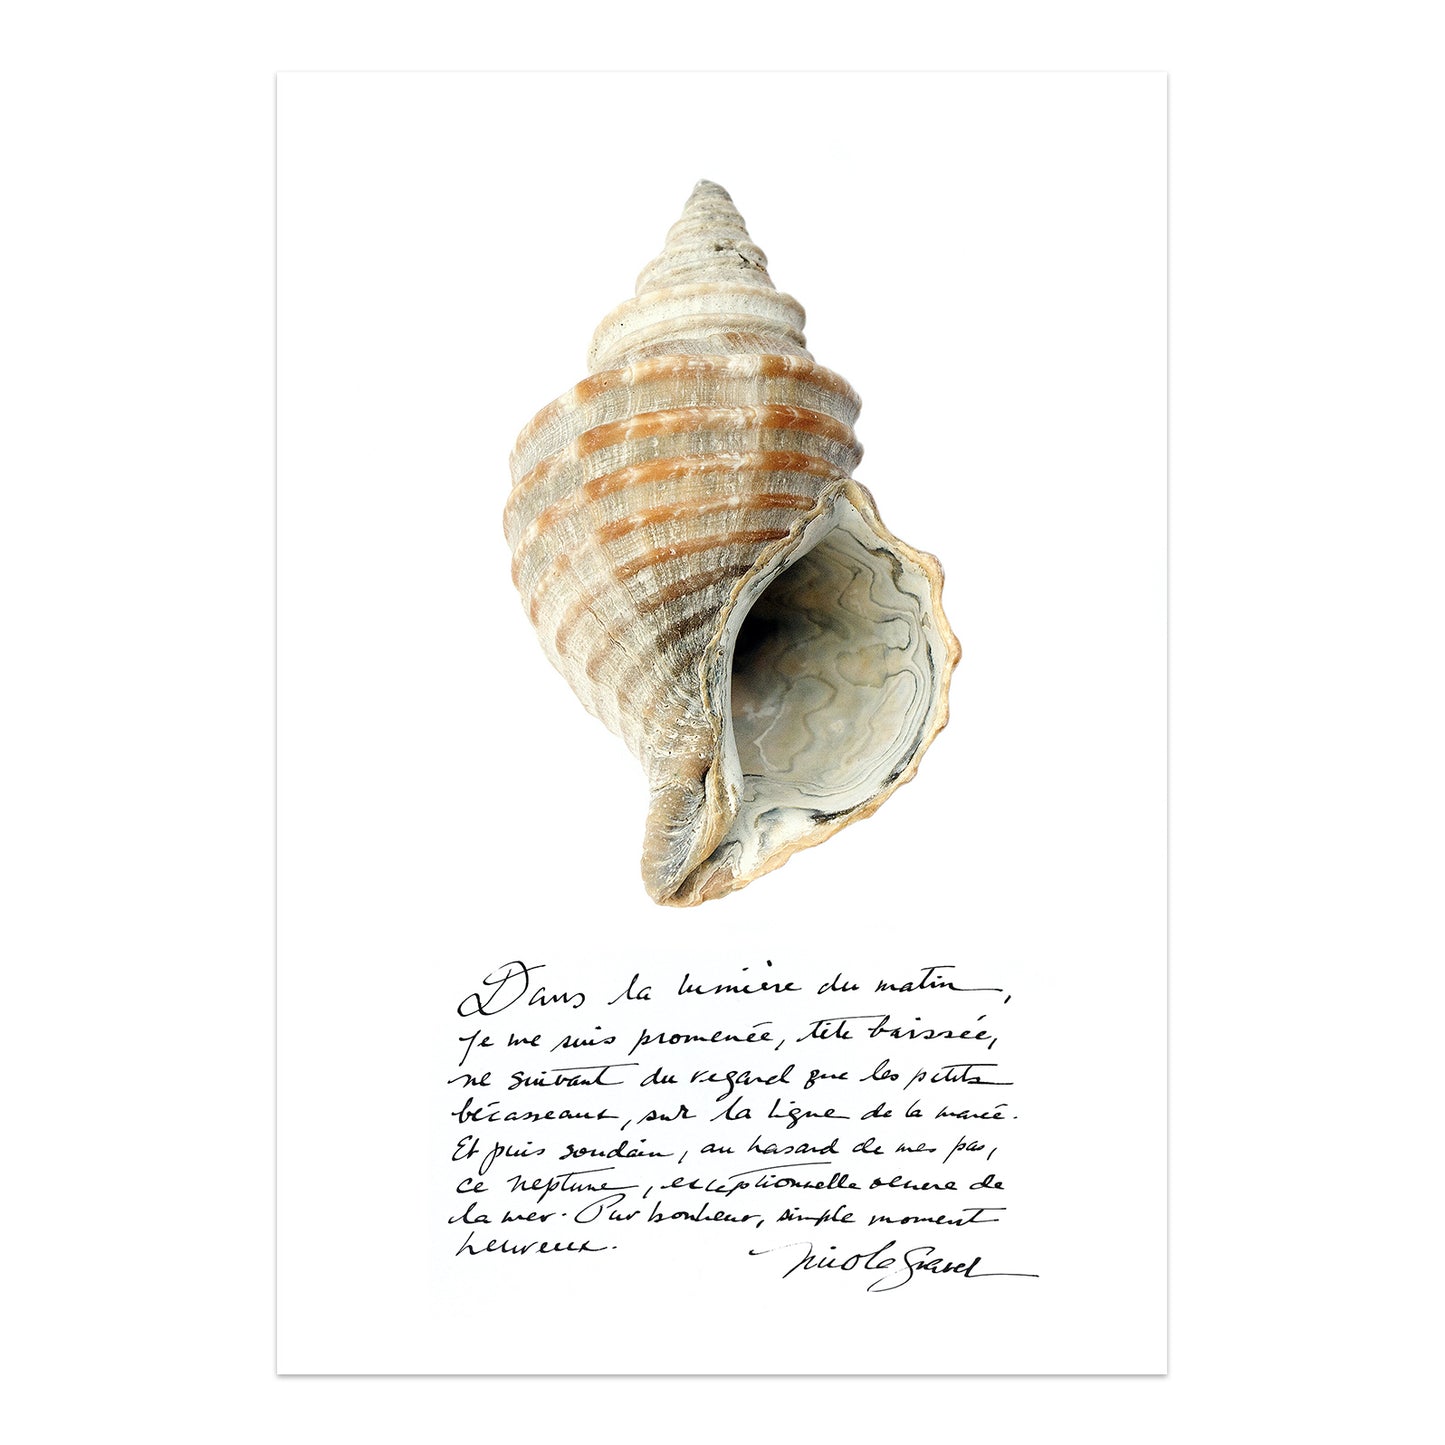 Dans la lumière du matin,
je me suis promenée, tête baissée,
ne suivant du regard que les petits
bécasseaux, sur la ligne de la marée.
Et puis soudain, au hasard de mes pas,
ce neptune, exceptionnelle œuvre de
la mer. Pur bonheur, simple moment
heureux.
Nicole Gravel